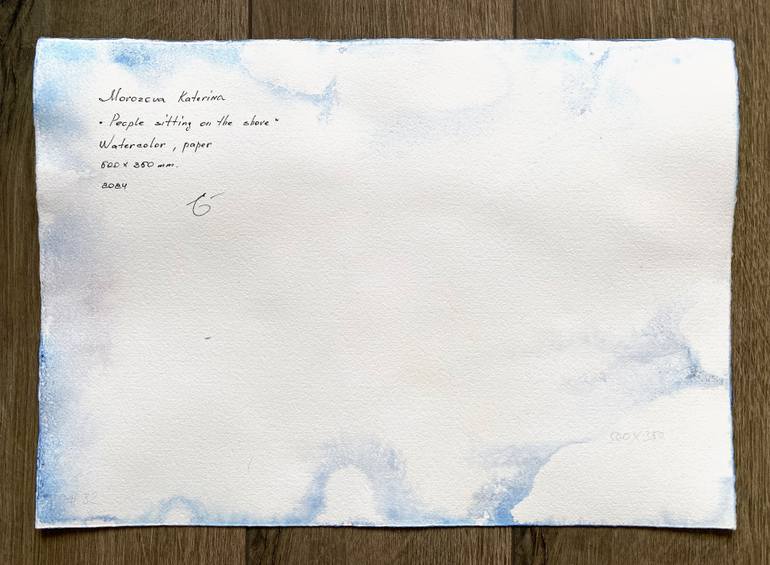 Morozova Katerina
"People sitting on the shore"
Watercolor, paper
500 x 350 mm.
2024
500 x 350